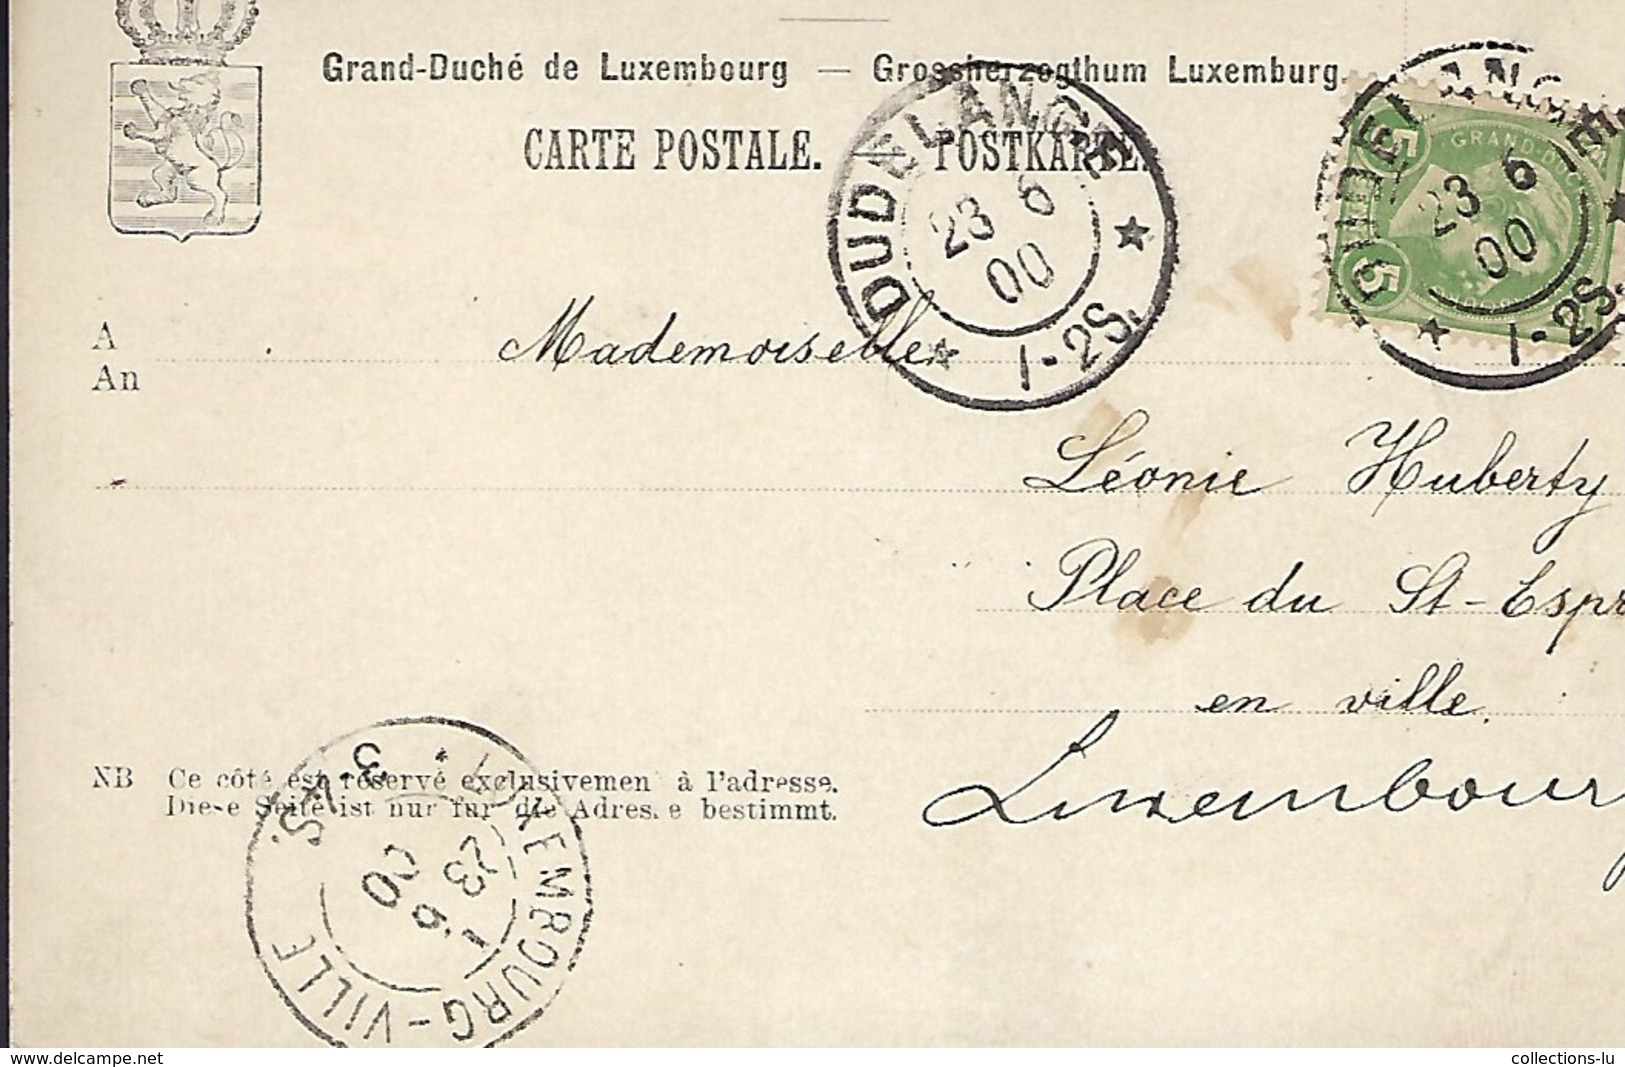 Grand-Duché de Luxembourg — Grossherzogthum Luxemburg.
CARTE POSTALE. POSTKARTE.
DUDELANGE
23 6
00
1-2S.
DUDELANGE
23 6
00
1-2S.
5
GRAND-DUC
5
A Mademoiselle
An
Léonie Huberty
Place du St-Espr
en ville.
Luxembourg
NB Ce côté est réservé exclusivemen à l'adresse.
Diese Seite ist nur für die Adresse bestimmt.
LUXEMBOURG-VILLE
23
6
00
www.delcampe.net
collections-lu